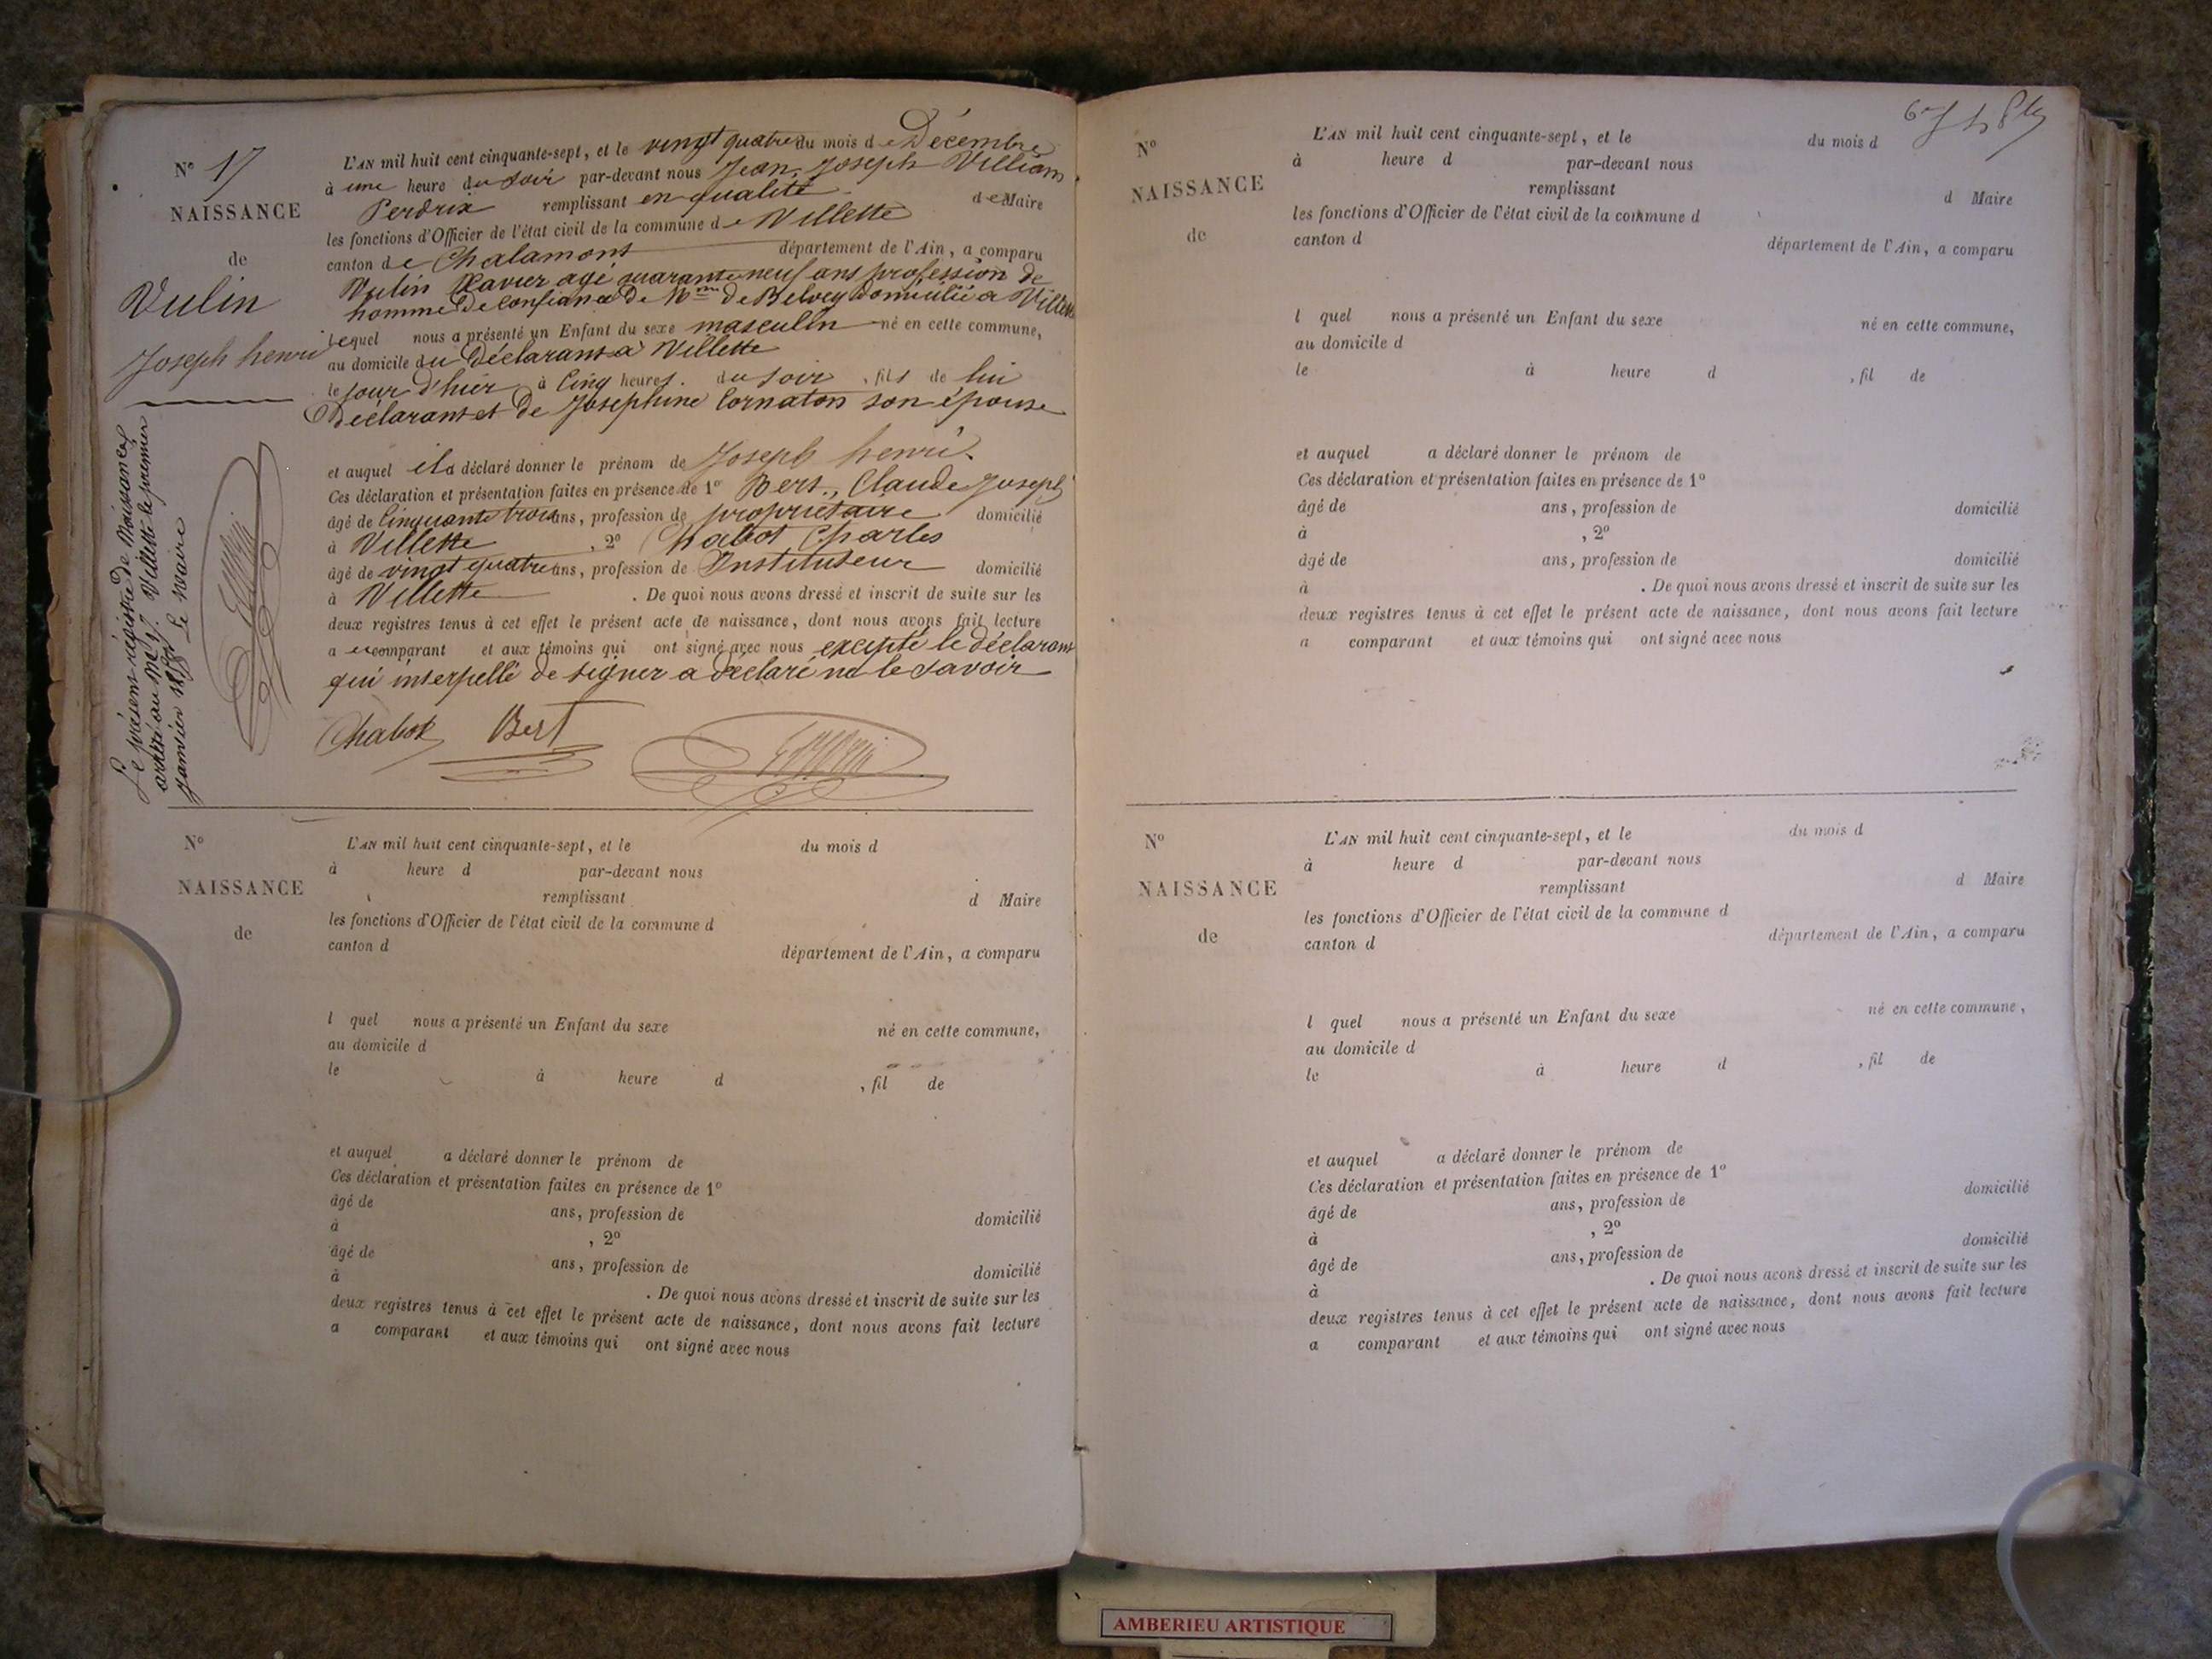 N° 17
NAISSANCE
de
Vulin
Joseph henri
L'AN mil huit cent cinquante-sept, et le vingt quatre du mois de Décembre
à une heure du soir par-devant nous Jean Joseph Villiam
Perdrix remplissant en qualité de Maire
les fonctions d'Officier de l'état civil de la commune de Villette
canton de Chalamont département de l'Ain, a comparu
Vulin Xavier agé quarante neuf ans profession de
homme de confiance de Mme de Belvey domicilié a Villette
lequel nous a présenté un Enfant du sexe masculin né en cette commune,
au domicile du Déclarant a Villette
le jour d'hier à Cinq heures du soir, fils de lui
Déclarant et de Josephine Cornaton son épouse
et auquel il a déclaré donner le prénom de Joseph henri.
Ces déclaration et présentation faites en présence de 1° Bert, Claude Joseph
âgé de Cinquante trois ans, profession de propriétaire domicilié
à Villette, 2° Chabot Charles
âgé de vingt quatre ans, profession de Instituteur domicilié
à Villette. De quoi nous avons dressé et inscrit de suite sur les
deux registres tenus à cet effet le présent acte de naissance, dont nous avons fait lecture
au comparant et aux témoins qui ont signé avec nous excepté le déclarant
qui interpellé de signer a déclaré ne le savoir
Chabot Bert
Le présent régistre de Naissances
arrêté au N° 17. Villette le premier
janvier 1858 Le Maire
N°
NAISSANCE
de
L'AN mil huit cent cinquante-sept, et le du mois d
à heure d par-devant nous
remplissant d Maire
les fonctions d'Officier de l'état civil de la commune d
canton d département de l'Ain, a comparu
l quel nous a présenté un Enfant du sexe né en cette commune,
au domicile d
le à heure d , fil de
et auquel a déclaré donner le prénom de
Ces déclaration et présentation faites en présence de 1°
âgé de ans, profession de domicilié
à , 2°
âgé de ans, profession de domicilié
à . De quoi nous avons dressé et inscrit de suite sur les
deux registres tenus à cet effet le présent acte de naissance, dont nous avons fait lecture
a comparant et aux témoins qui ont signé avec nous
N°
NAISSANCE
de
L'AN mil huit cent cinquante-sept, et le du mois d
à heure d par-devant nous
remplissant d Maire
les fonctions d'Officier de l'état civil de la commune d
canton d département de l'Ain, a comparu
l quel nous a présenté un Enfant du sexe né en cette commune,
au domicile d
le à heure d , fil de
et auquel a déclaré donner le prénom de
Ces déclaration et présentation faites en présence de 1°
âgé de ans, profession de domicilié
à , 2°
âgé de ans, profession de domicilié
à . De quoi nous avons dressé et inscrit de suite sur les
deux registres tenus à cet effet le présent acte de naissance, dont nous avons fait lecture
a comparant et aux témoins qui ont signé avec nous
N°
NAISSANCE
de
L'AN mil huit cent cinquante-sept, et le du mois d
à heure d par-devant nous
remplissant d Maire
les fonctions d'Officier de l'état civil de la commune d
canton d département de l'Ain, a comparu
l quel nous a présenté un Enfant du sexe né en cette commune,
au domicile d
le à heure d , fil de
et auquel a déclaré donner le prénom de
Ces déclaration et présentation faites en présence de 1°
âgé de ans, profession de domicilié
à , 2°
âgé de ans, profession de domicilié
à . De quoi nous avons dressé et inscrit de suite sur les
deux registres tenus à cet effet le présent acte de naissance, dont nous avons fait lecture
a comparant et aux témoins qui ont signé avec nous
AMBERIEU ARTISTIQUE